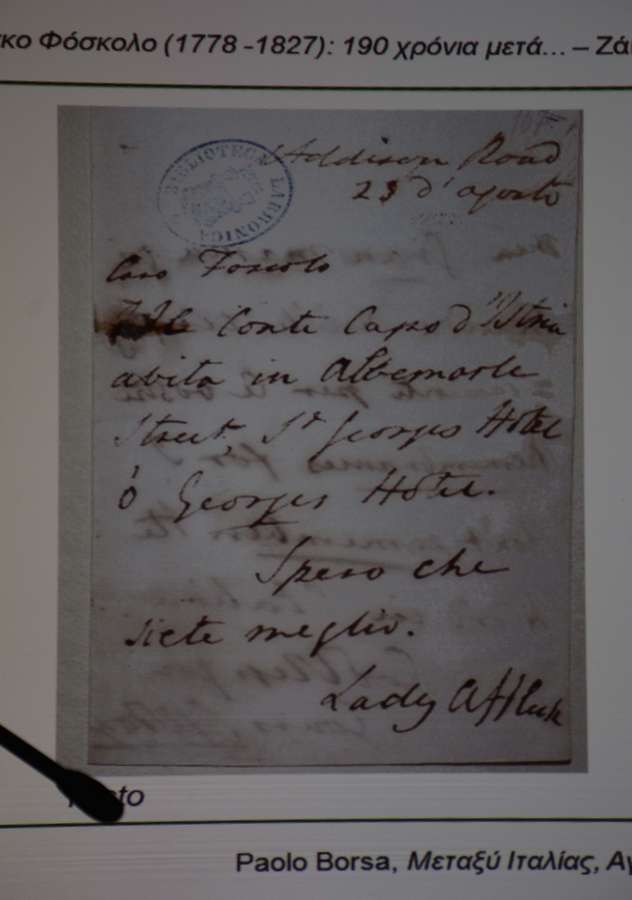 κο Φόσκολο (1778 -1827): 190 χρόνια μετά... – Ζά
BIBLIOTECA LABRONICA
Addison Road
23 d'agosto
Caro Foscolo
Il Conte Capo d'Istria
abita in Albemarle
Street, St Georges Hotel
ó Georges Hotel.
Spero che
siete meglio.
Lady Affleck
Paolo Borsa, Μεταξύ Ιταλίας, Αγ